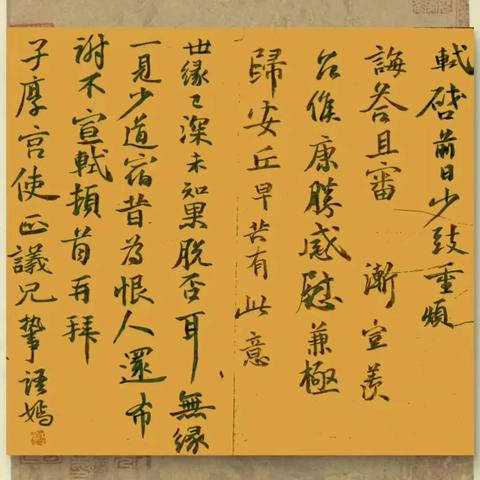 軾啓前日少致重煩
誨答且審 漸宣羨
台候康勝感慰兼極
歸安丘早共有此意
世緣已深未知果脫否耳無緣
一見少道宿昔為恨人還布
謝不宣軾頓首再拜
子厚宮使正議兄執事語嫣